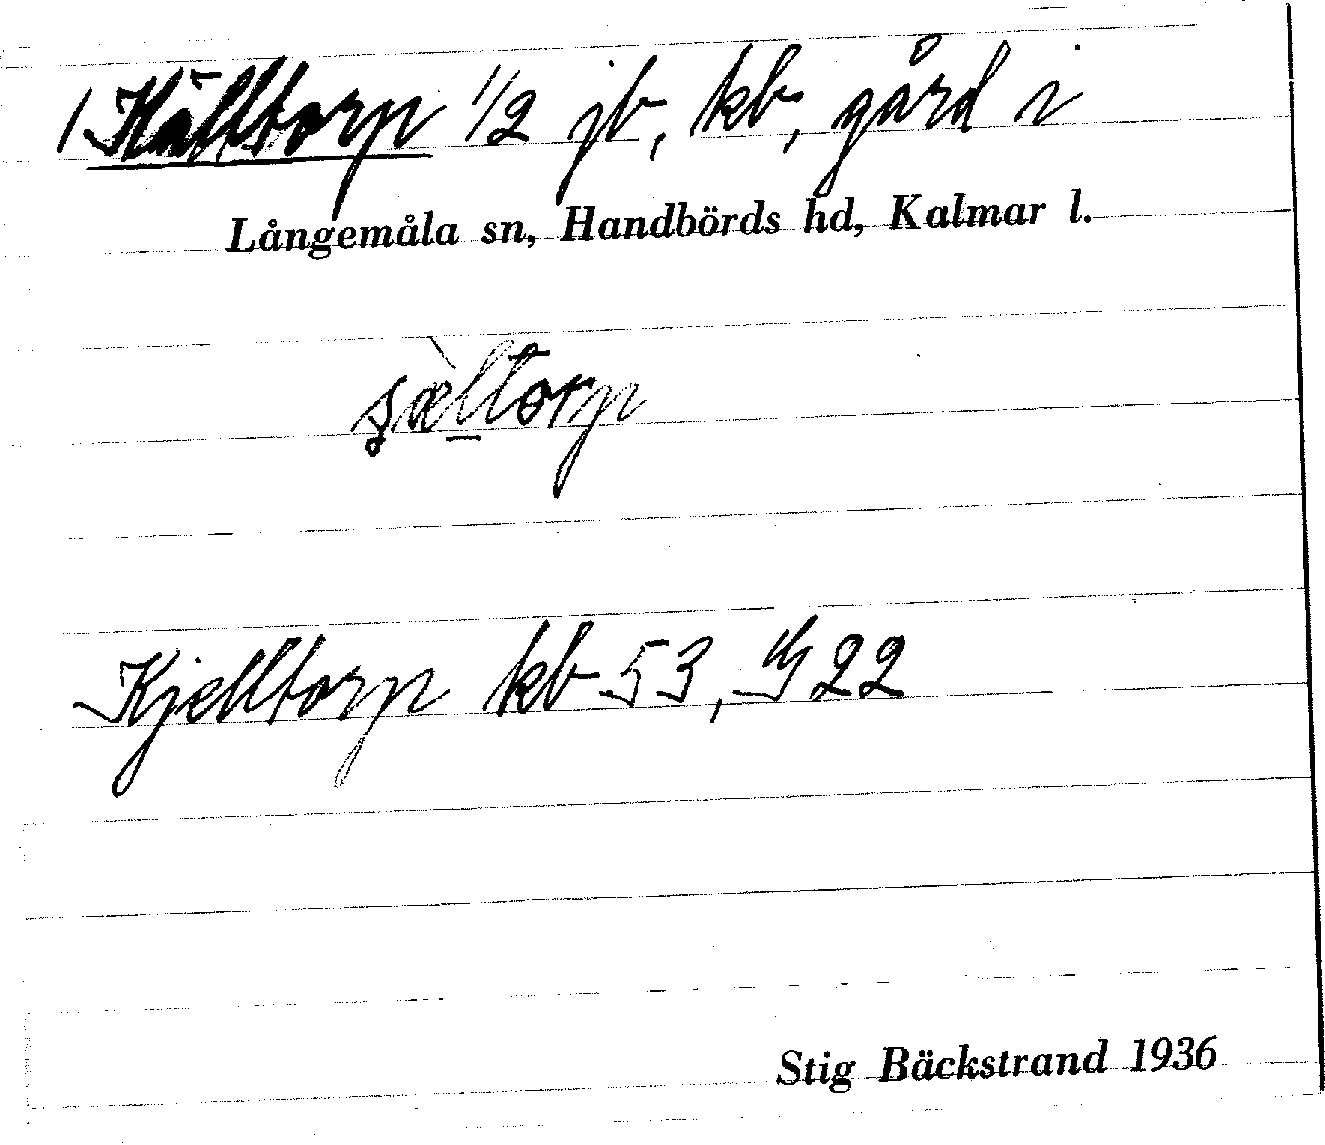 1 Källtorp 1/2 jb, kb, gård i
Långemåla sn, Handbörds hd, Kalmar l.
s̨æ̀l̲torp
Kjelltorp kb 53, 22
Stig Bäckstrand 1936